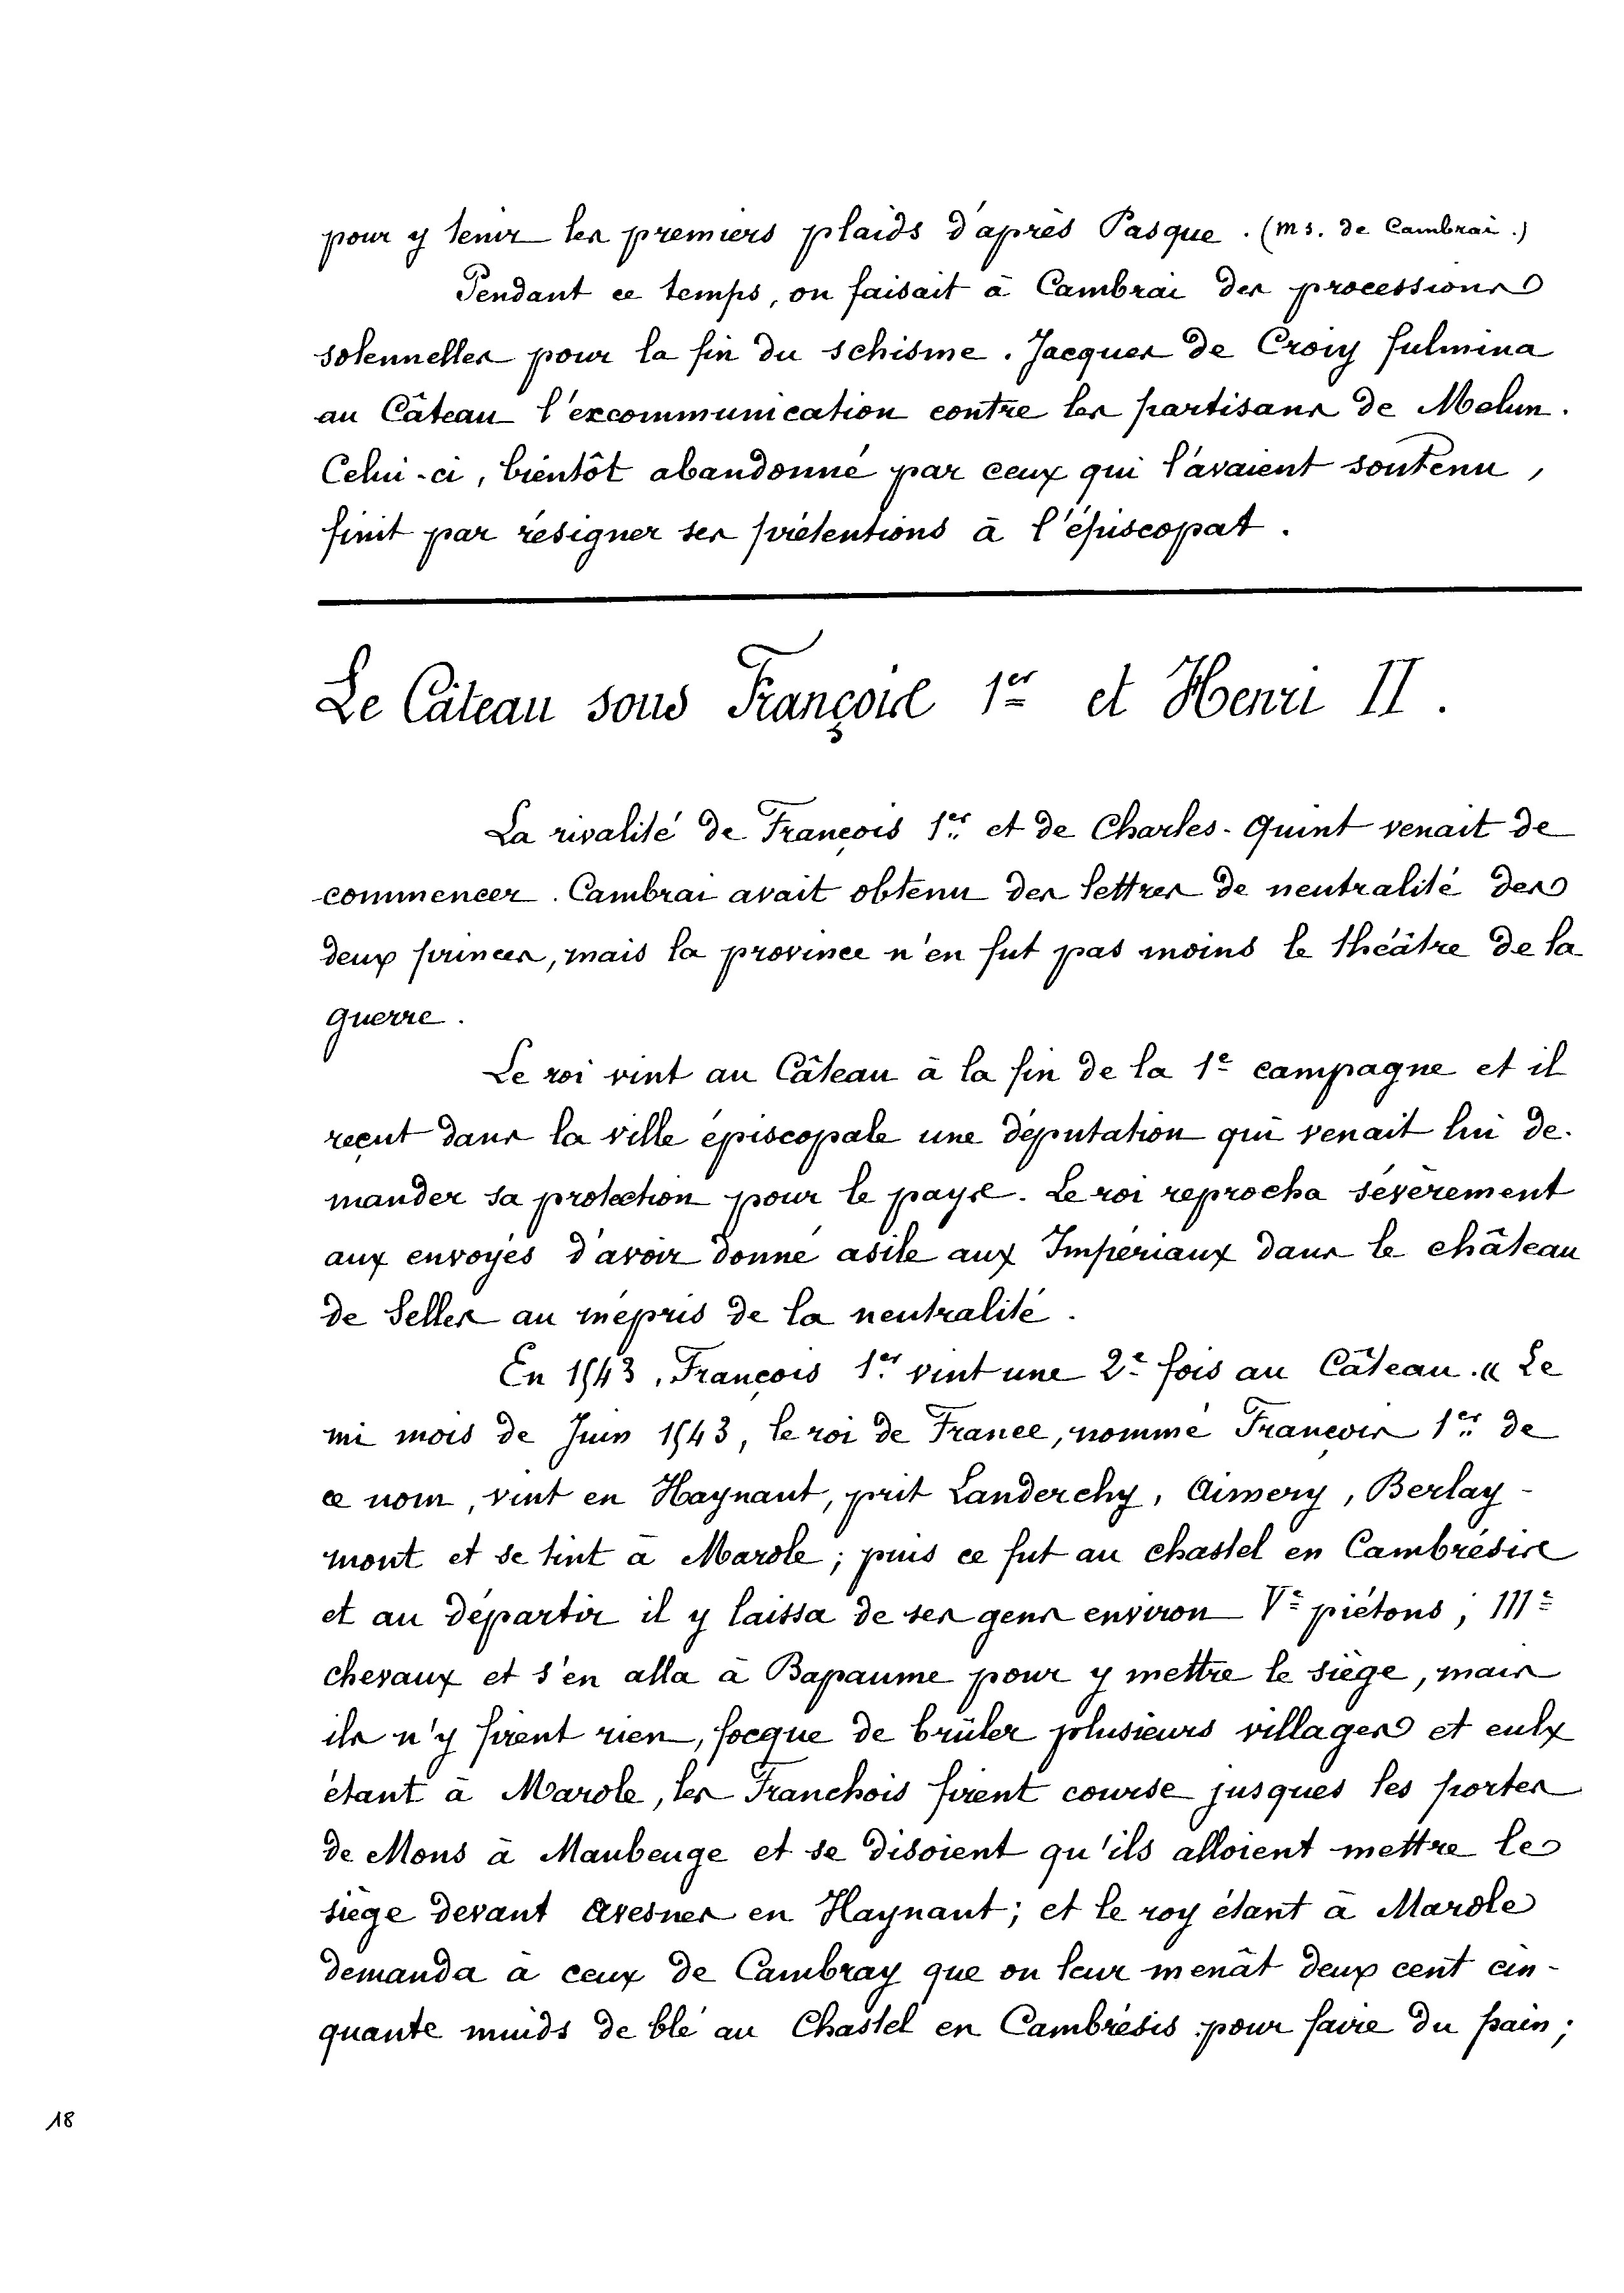 pour y tenir les premiers plaids d'après Pasque. (ms. de Cambrai.)
Pendant ce temps, on faisait à Cambrai des processions
solennelles pour la fin du schisme. Jacques de Croiy fulmina
au Câteau l'excommunication contre les partisans de Melun.
Celui-ci, bientôt abandonné par ceux qui l'avaient soutenu,
finit par résigner ses prétentions à l'épiscopat.
Le Câteau sous François 1er et Henri II.
La rivalité de François 1er et de Charles-Quint venait de
commencer. Cambrai avait obtenu des lettres de neutralité des
deux princes, mais la province n'en fut pas moins le théâtre de la
guerre.
Le roi vint au Câteau à la fin de la 1e campagne et il
reçut dans la ville épiscopale une députation qui venait lui de-
mander sa protection pour le pays. Le roi reprocha sévèrement
aux envoyés d'avoir donné asile aux Impériaux dans le château
de Selles au mépris de la neutralité.
En 1543, François 1er vint une 2e fois au Câteau. « Le
mi mois de Juin 1543, le roi de France, nommé François 1er de
ce nom, vint en Haynaut, prit Landerchy, Aimery, Berlay-
mont et se tint à Marole; puis ce fut au chastel en Cambrésis
et au départir il y laissa de ses gens environ Ve piétons, IIIe
chevaux et s'en alla à Bapaume pour y mettre le siège, mais
ils n'y firent rien, focque de brûler plusieurs villages et eulx
étant à Marole, les Franchois firent course jusques les portes
de Mons à Maubeuge et se disoient qu'ils alloient mettre le
siège devant Avesnes en Haynaut; et le roy étant à Marole
demanda à ceux de Cambray que on leur menât deux cent cin-
quante muids de blé au Chastel en Cambrésis pour faire du pain;
18